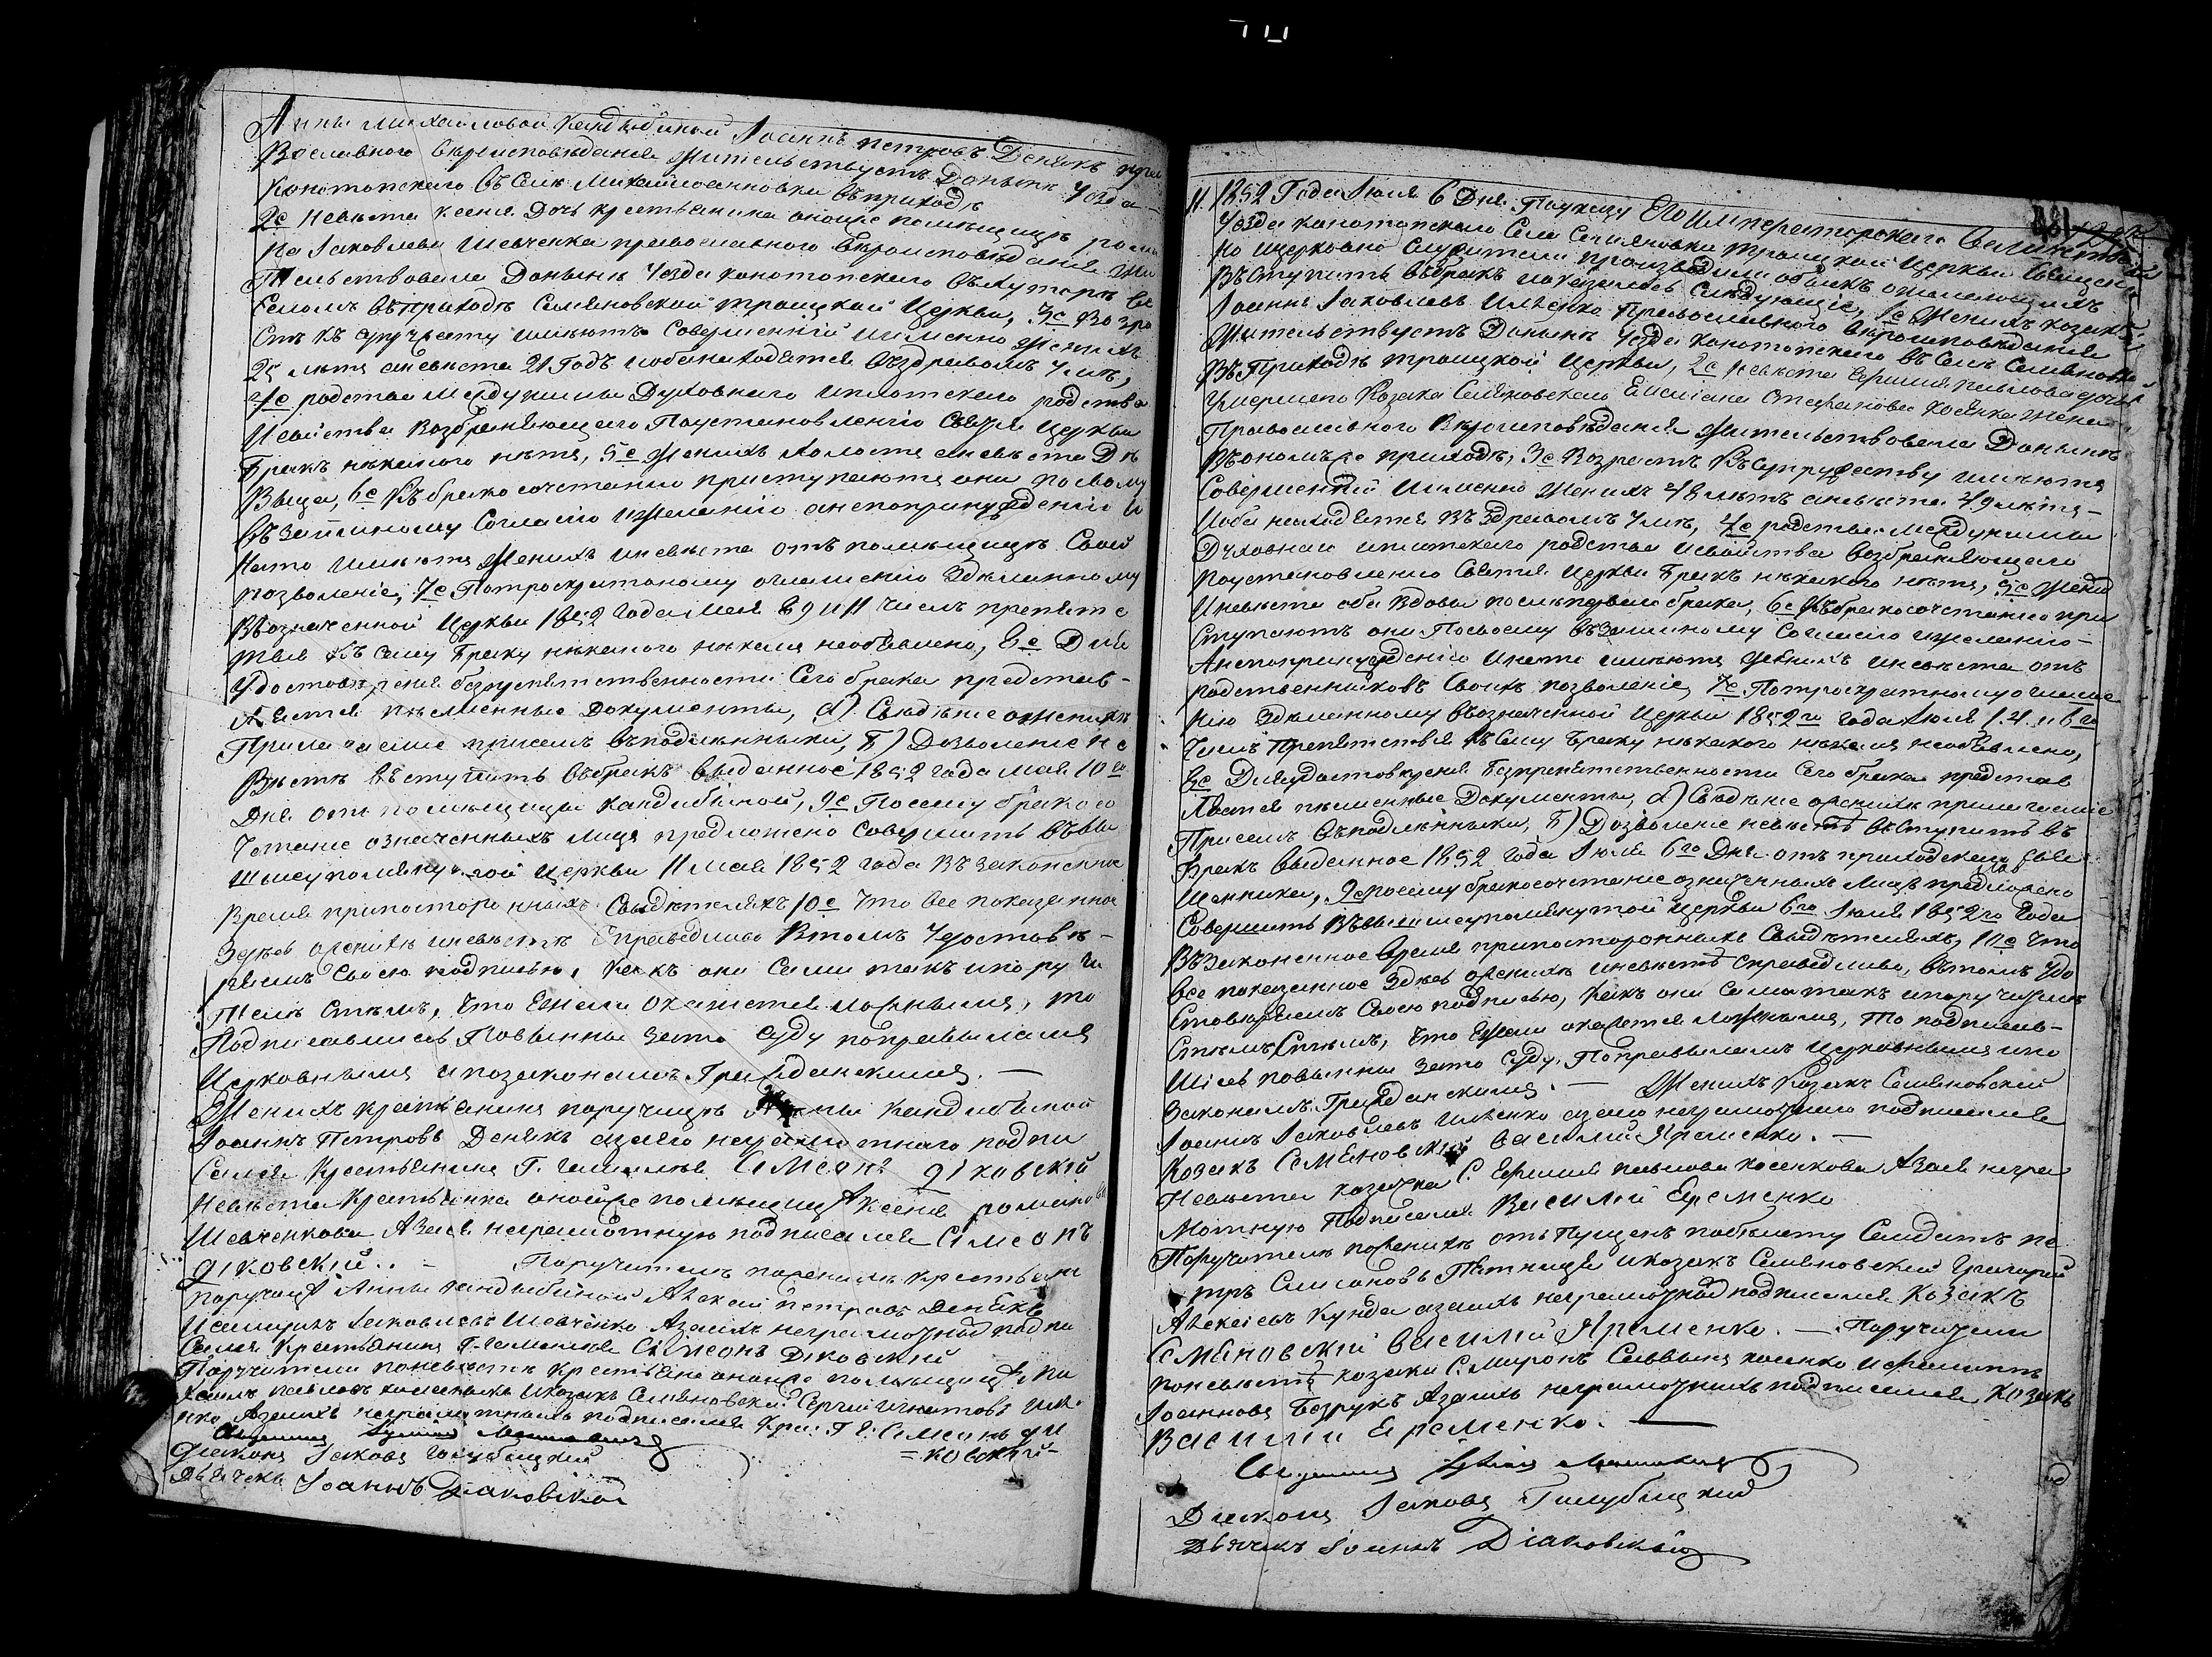 Анны Михайловой Кандыбиной Іоаннъ Петровъ Денякъ пра
вославного вѣроисповѣданія жительствуетъ Донынѣ уѣзда
Конотопского въ Селѣ Михайло-Анновки въ приходѣ
2е Невѣста Ксенія Дочь крестьянина оной же помѣщицы рома
на Іаковлева Шевченка православного вѣроисповѣданія жи
тельствовала Донынѣ уѣзда конотопского въ хуторѣ
въ приходѣ Семяновской троицкой Церкви, 3е Возра
стъ къ супружеству имѣютъ совершенній именно женихъ
25 лѣтъ а невѣста 21 Годъ и оба находятся въ здравомъ умѣ,
4е родства между ими Духовнаго и плотскаго родства
и свойства возбраняющаго По установленію Святыя Церкви
Бракъ нѣкакого нѣтъ, 5е Женихъ холостъ а невѣста Дѣ
вица, 6е Къ бракосочетанію приступаютъ они по своему
взаимному Согласію и желанію а не по принужденію и
на то имѣютъ Женихъ и невѣста отъ помѣщицы Своей
позволеніе, 7е По троекратному оглашенію зделанному
въ означенной Церкви 1852 года Мая 8, 9 и 11 числъ препятс
твія къ сему Браку нѣкакого нѣкемъ необявлено, 8е Для
удостовѣренія безпрепятственности Сего брака представ-
ляются письменные Документы, а) Свѣдѣніе о женихѣ
Прилагаемие при семъ въ подлинныки, б) Дозволеніе не
вѣстѣ вступить въ бракъ выданное 1852 года мая 10го
Дня отъ помѣщицы Кандыбиной, 9е По сему бракосо
четаніе означенныхъ лицъ предложено совершить въ вы
шеупомянутой Церкви 11 мая 1852 года въ законенное
время при постороннихъ Свидѣтеляхъ 10е Что все показанное
здѣсь о женихѣ и невѣстѣ Справедливо в томъ удостовѣ-
ряемъ Своею подписью, какъ они Сами такъ и поручи
тели Стѣмъ, что Ежели окажется ложнымъ, то
Подписавшиеся Повинны за то Суду по правыламъ
Церковнымъ и по законамъ Гражданскимъ. —
Женихъ крестьянинъ поручицы Анны Кандибиной
Іоаннъ Петровъ Денякъ а за его неграмотного подпи
сался Крестьянинъ Г. Симеонъ Діковскій
Невѣста Крестьянка оной же помѣщицы Ксенія романова
Шевченкова А за ея неграмотную подписался Симеонъ
Діковскій. — Поручители по женихѣ крестьяне
поручицы Анны Кандыбиной Алексей Петровъ Денякъ
и Іаковлевъ Шевченко А за ихъ неграмотныхъ подпи
сался Крестьянинъ Г. Симеонъ Діковскій
Поручители по невѣстѣ Крестьяне оной же помѣщицы
Павловъ и казакъ Семяновский Сергій Игнатовъ
А за ихъ неграмотныхъ подписался Симеонъ Ди
=ковскій=
Священникъ
Діаконъ Іаковъ Голубицкій
Дьячекъ Іоаннъ Діаковскій
11. 1852 Года Іюля 6 Дня. По указу Его Императорского Величества
уѣзда конотопского Села Семяновки троицкой Церкви Священ
но Церковно служители производили обыскъ о желающихъ
вступить въ бракъ и оказалось Слѣдующіе, 1е Женихъ козакъ
Іоаннъ Іаковлевъ Православного вѣроисповѣданія
Жительствуетъ Донынѣ уѣзда Конотопского въ Селѣ Семяновкѣ
въ Приходѣ троицкой Церкви, 2е Невѣста Ефимія Павлова дочь
умершего Козака Семяновского Стефанова Косенка жена
Православного Вѣроисповѣданія Жительствовала Донынѣ
въ ономъ же приходѣ, 3е Возрастъ къ Супружеству имѣютъ
совершенній именно Женихъ 48 лѣтъ а невѣста 49 лѣтъ —
и оба находятся въ здравомъ умѣ, 4е родства между ими
Духовнаго и плотскаго родства и свойства возбраняющего
По установленію Святыя Церкви Бракъ нѣкакого нѣтъ, 5е Женихъ
и невѣста оба вдовы послѣ первого брака, 6е Къ бракосочетанію при
ступаютъ они По своему взаимному Согласію и желанію —
А не по принужденію и на то имѣютъ Женихъ и невѣста отъ
родственниковъ Своихъ позволеніе, 7е По троекратному оглаше
нію зделанному въ означенной Церкви 1852го года Іюля 1. 4. и 6го
Числъ Препятствія къ сему Браку нѣкакого нѣкемъ необявлено,
8е Для удостовѣренія Безпрепятственности Сего брака представ
ляются письменные Документы, а) Свѣдѣніе о женихѣ прилагаемие
при семъ въ подлинныки, б) Дозволеніе невѣстѣ вступить въ
Бракъ выданное 1852 года Іюля 6го Дня отъ приходскаго Свя
щенника, 9е по сему бракосочетаніе означенныхъ Лицъ предложено
Совершить въ вышеупомянутой Церкви 6го Іюля 1852го Года
въ законенное время при постороннихъ Свидѣтеляхъ, 10е Что
все показанное здѣсь о женихѣ и невѣстѣ справедливо, въ томъ удо
стовѣряемъ Своею подписью, какъ они Сами такъ и поручители
Стѣмъ, что Ежели окажется ложнымъ, то подписав-
шіеся повинны за то Суду По правыламъ Церковнымъ и по
законамъ Гражданскимъ. — Женихъ Козакъ Семяновскій
Іоаннъ Іаковлевъ а за его неграмотного подписался
Козакъ Семеновскій Василій Яременко. —
Невѣста козачка С. Ефимія Павлова Косенкова А за ея негра
мотную Подписался Василій Еременко
Поручители по женихѣ отъпущенъ по билету Солдатъ Пе
тръ Симоновъ и козакъ Семяновскій Григорій
Алексіевъ Кунда а за ихъ неграмотныхъ подписался Козакъ
Семеновскій Василій Яременко. — Поручители
по невѣстѣ козаки С. Миронъ Саввинъ Косенко и Филиппъ
Іоанновъ Безрукъ А за ихъ неграмотныхъ подписался Козакъ
Василій Еременко. —
Священникъ
Діаконъ Іаковъ Голубицкій
Дьячекъ Іоаннъ Діаковскій